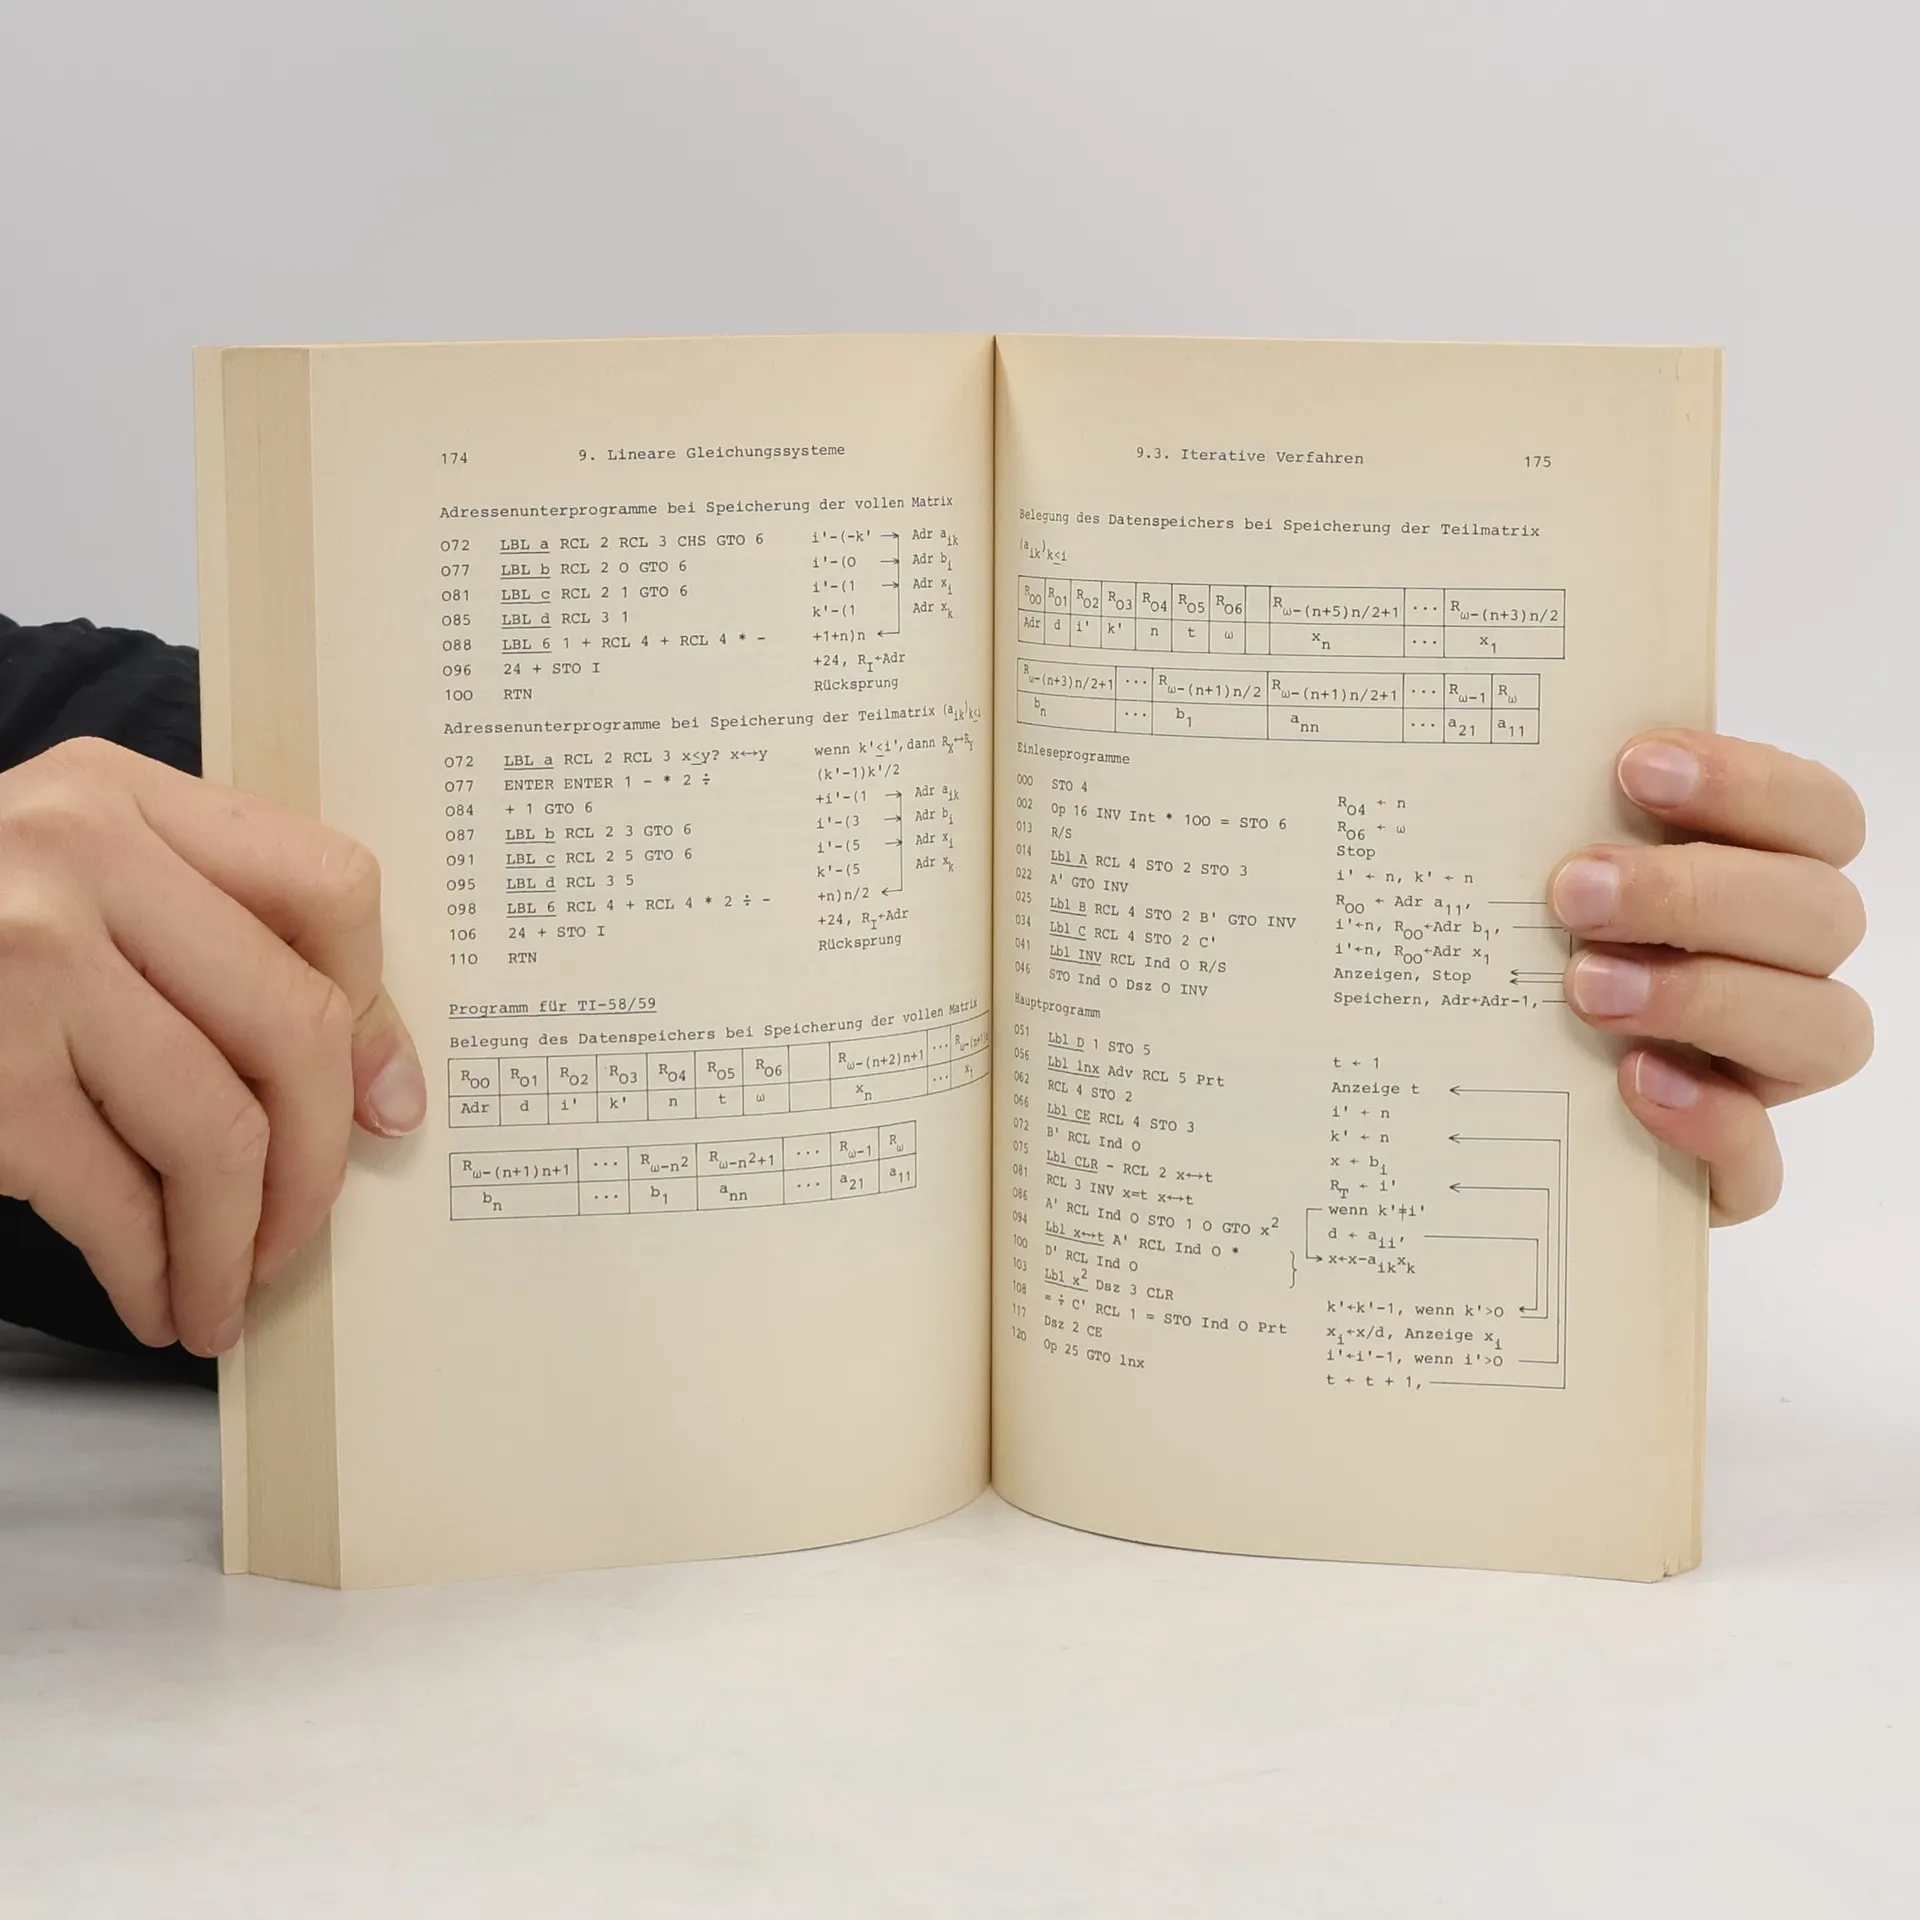 174 9. Lineare Gleichungssysteme
Adressenunterprogramme bei Speicherung der vollen Matrix
072 LBL a RCL 2 RCL 3 CHS GTO 6 i'-(-k' → Adr a_ik
077 LBL b RCL 2 0 GTO 6 i'-(0 → Adr b_i
081 LBL c RCL 2 1 GTO 6 i'-(1 → Adr x_i
085 LBL d RCL 3 1 k'-(1 Adr x_k
088 LBL 6 1 + RCL 4 + RCL 4 * - +1+n)n ←
096 24 + STO I +24, R_I←Adr
100 RTN Rücksprung
Adressenunterprogramme bei Speicherung der Teilmatrix (a_ik)k≤i
072 LBL a RCL 2 RCL 3 x≤y? x↔y wenn k'≤i', dann R_X↔R_Y
077 ENTER ENTER 1 - * 2 ÷ (k'-1)k'/2
084 + 1 GTO 6 +i'-(1 → Adr a_ik
087 LBL b RCL 2 3 GTO 6 i'-(3 → Adr b_i
091 LBL c RCL 2 5 GTO 6 i'-(5 → Adr x_i
095 LBL d RCL 3 5 k'-(5 Adr x_k
098 LBL 6 RCL 4 + RCL 4 * 2 ÷ - +n)n/2 ←
106 24 + STO I +24, R_I←Adr
110 RTN Rücksprung
Programm für TI-58/59
Belegung des Datenspeichers bei Speicherung der vollen Matrix
R00 R01 R02 R03 R04 R05 R06 Rω-(n+2)n+1 ...
Adr d i' k' n t ω x_n ... x_1
Rω-(n+1)n+1 ... Rω-n² Rω-n²+1 ... Rω-1 Rω
b_n ... b_1 a_nn ... a_21 a_11
9.3. Iterative Verfahren 175
Belegung des Datenspeichers bei Speicherung der Teilmatrix
(a_ik)k≤i
R00 R01 R02 R03 R04 R05 R06 Rω-(n+5)n/2+1 ... Rω-(n+3)n/2
Adr d i' k' n t ω x_n ... x_1
Rω-(n+3)n/2+1 ... Rω-(n+1)n/2 Rω-(n+1)n/2+1 ... Rω-1 Rω
b_n ... b_1 a_nn ... a_21 a_11
Einleseprogramme
000 STO 4 R04 ← n
002 Op 16 INV Int * 100 = STO 6 R06 ← ω
013 R/S Stop
014 Lbl A RCL 4 STO 2 STO 3 i' ← n, k' ← n
022 A' GTO INV R00 ← Adr a_11,
025 Lbl B RCL 4 STO 2 B' GTO INV i'←n, R00←Adr b_1,
034 Lbl C RCL 4 STO 2 C' i'←n, R00←Adr x_1
041 Lbl INV RCL Ind 0 R/S Anzeigen, Stop
046 STO Ind 0 Dsz 0 INV Speichern, Adr←Adr-1,
Hauptprogramm
051 Lbl D 1 STO 5 t ← 1
056 Lbl lnx Adv RCL 5 Prt Anzeige t
062 RCL 4 STO 2 i' ← n
066 Lbl CE RCL 4 STO 3 k' ← n
072 B' RCL Ind 0 x ← b_i
075 Lbl CLR - RCL 2 x↔t R_T ← i'
081 RCL 3 INV x=t x↔t wenn k'≠i'
086 A' RCL Ind 0 STO 1 0 GTO x² d ← a_ii,
094 Lbl x↔t A' RCL Ind 0 * } x←x-a_ik x_k
100 D' RCL Ind 0
103 Lbl x² Dsz 3 CLR k'←k'-1, wenn k'>0
108 = ÷ C' RCL 1 = STO Ind 0 Prt x_i←x/d, Anzeige x_i
117 Dsz 2 CE i'←i'-1, wenn i'>0
120 Op 25 GTO lnx t ← t + 1,